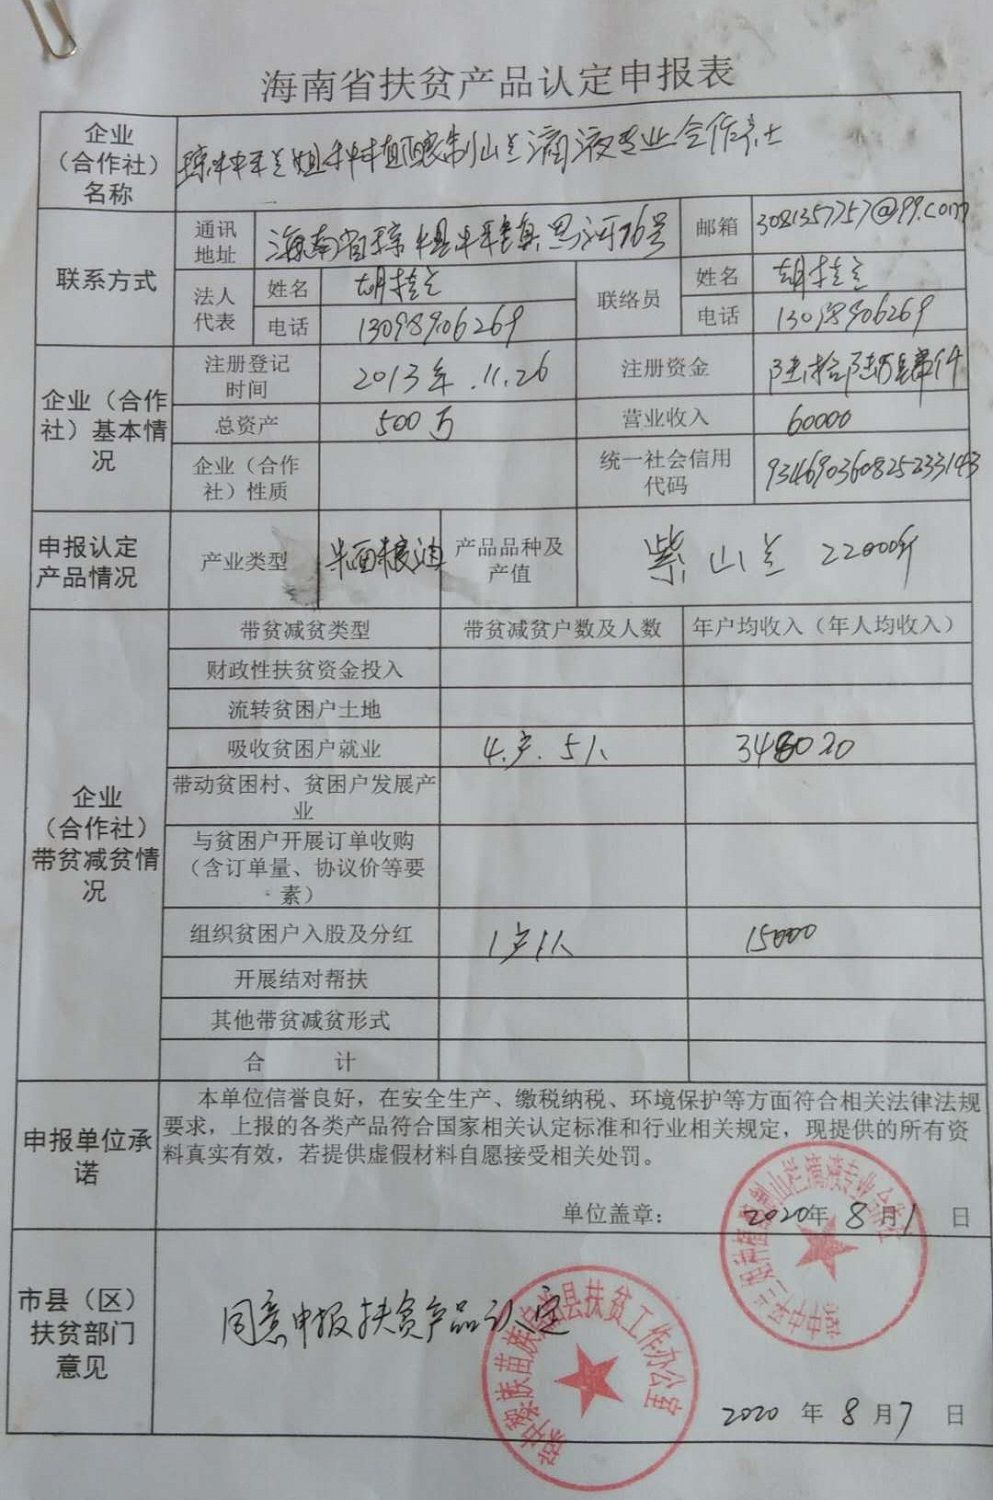 海南省扶贫产品认定申报表
企业
（合作社）
名称
种植酿制山兰滴液专业合作社
联系方式
通讯
地址
海南省琼中县中平镇思河76号
邮箱
3081357757@qq.com
法人
代表
姓名
胡桂兰
电话
13098906269
联络员
姓名
胡桂兰
电话
13098906269
企业（合作
社）基本情
况
注册登记
时间
2013年.11.26
注册资金
总资产
500万
营业收入
60000
企业（合作
社）性质
统一社会信用
代码
934690360825233143
申报认定
产品情况
产业类型
米面粮油
产品品种及
产值
紫山兰 22000斤
企业
（合作社）
带贫减贫情
况
带贫减贫类型
带贫减贫户数及人数
年户均收入（年人均收入）
财政性扶贫资金投入
流转贫困户土地
吸收贫困户就业
4.户.5人
348020
带动贫困村、贫困户发展产
业
与贫困户开展订单收购
（含订单量、协议价等要
素）
组织贫困户入股及分红
1户1人
15000
开展结对帮扶
其他带贫减贫形式
合 计
申报单位承
诺
本单位信誉良好，在安全生产、缴税纳税、环境保护等方面符合相关法律法规
要求，上报的各类产品符合国家相关认定标准和行业相关规定，现提供的所有资
料真实有效，若提供虚假材料自愿接受相关处罚。
单位盖章：
2020年 8月1 日
市县（区）
扶贫部门
意见
同意申报扶贫产品认定
琼中黎族苗族自治县扶贫工作办公室
2020 年 8月7 日